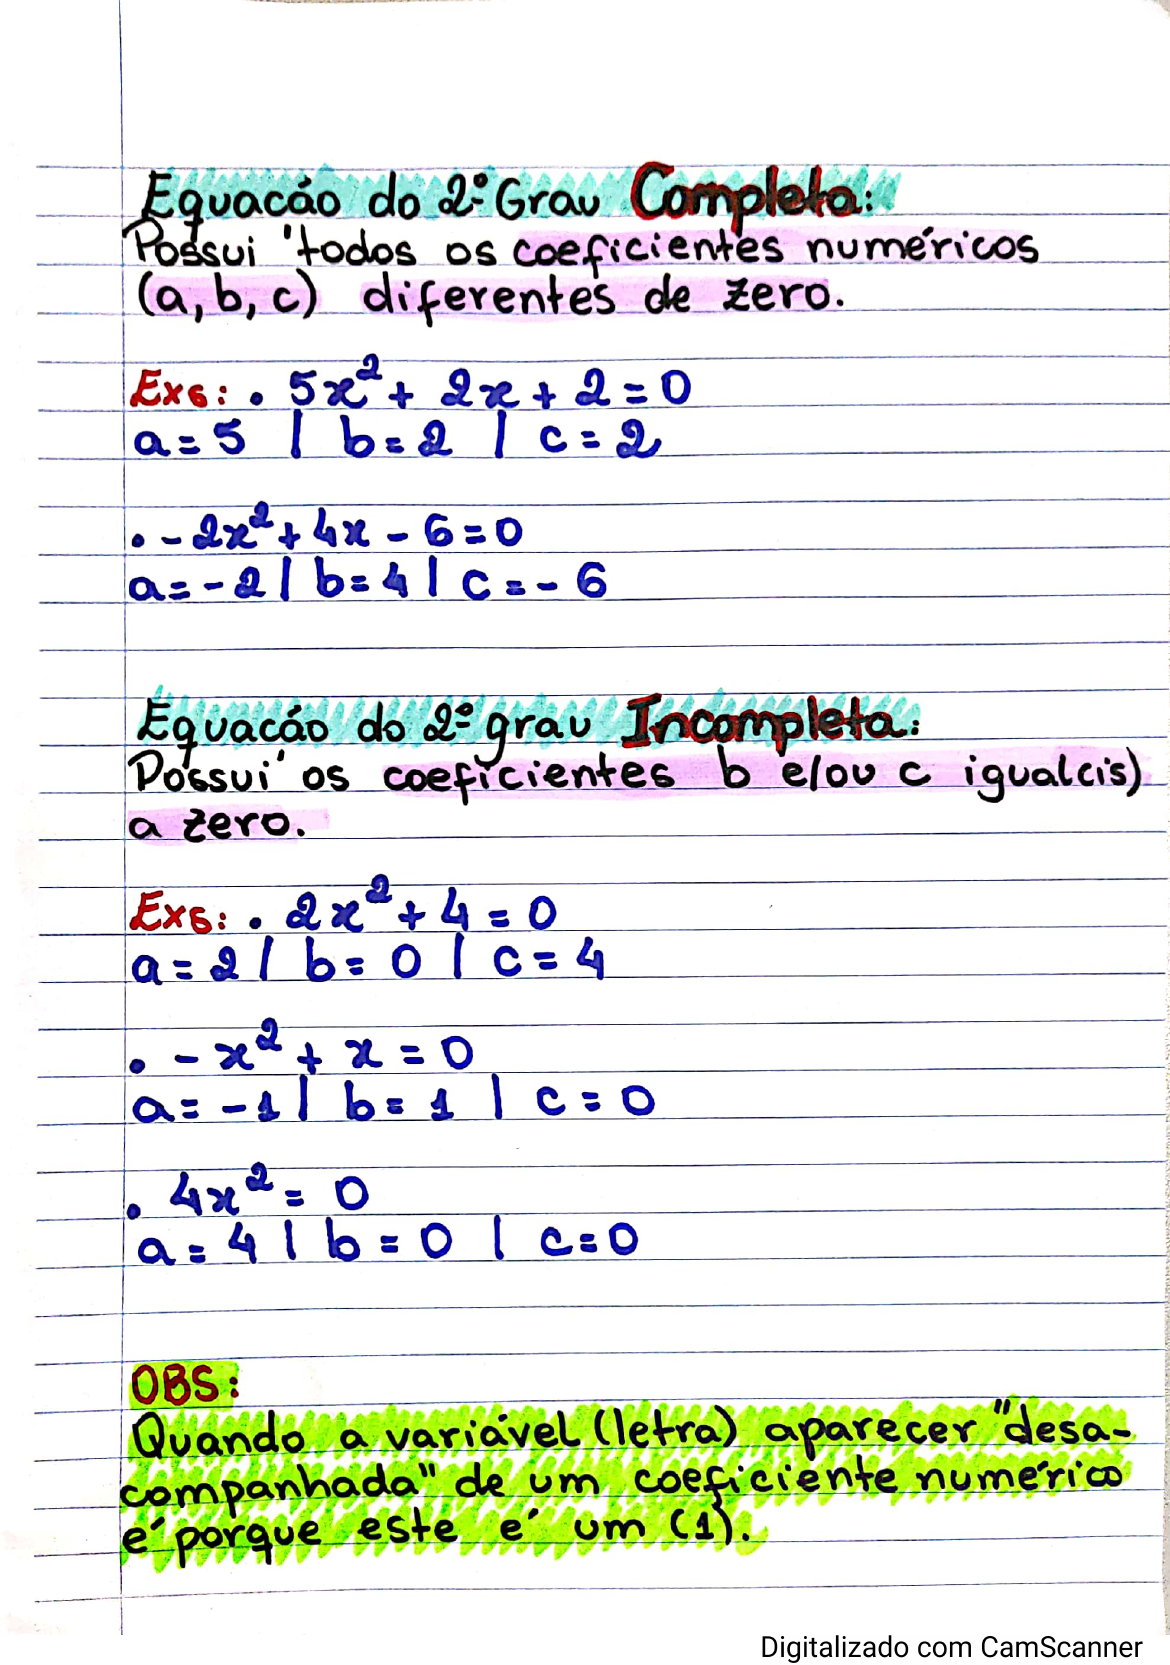 Equacáo do 2º Grau Completa:
Possui todos os coeficientes numéricos
(a, b, c) diferentes de zero.
Exs: • 5x² + 2x + 2 = 0
a = 5 | b = 2 | c = 2
• - 2x² + 4x - 6 = 0
a = - 2 | b = 4 | c = - 6
Equacáo do 2º grau Incompleta:
Possui os coeficientes b e/ou c igual(is)
a zero.
Exs: • 2x² + 4 = 0
a = 2 | b = 0 | c = 4
• - x² + x = 0
a = - 1 | b = 1 | c = 0
• 4x² = 0
a = 4 | b = 0 | c = 0
OBS:
Quando a variável (letra) aparecer "desa-
companhada" de um coeficiente numérico
é porque este é um (1).
Digitalizado com CamScanner